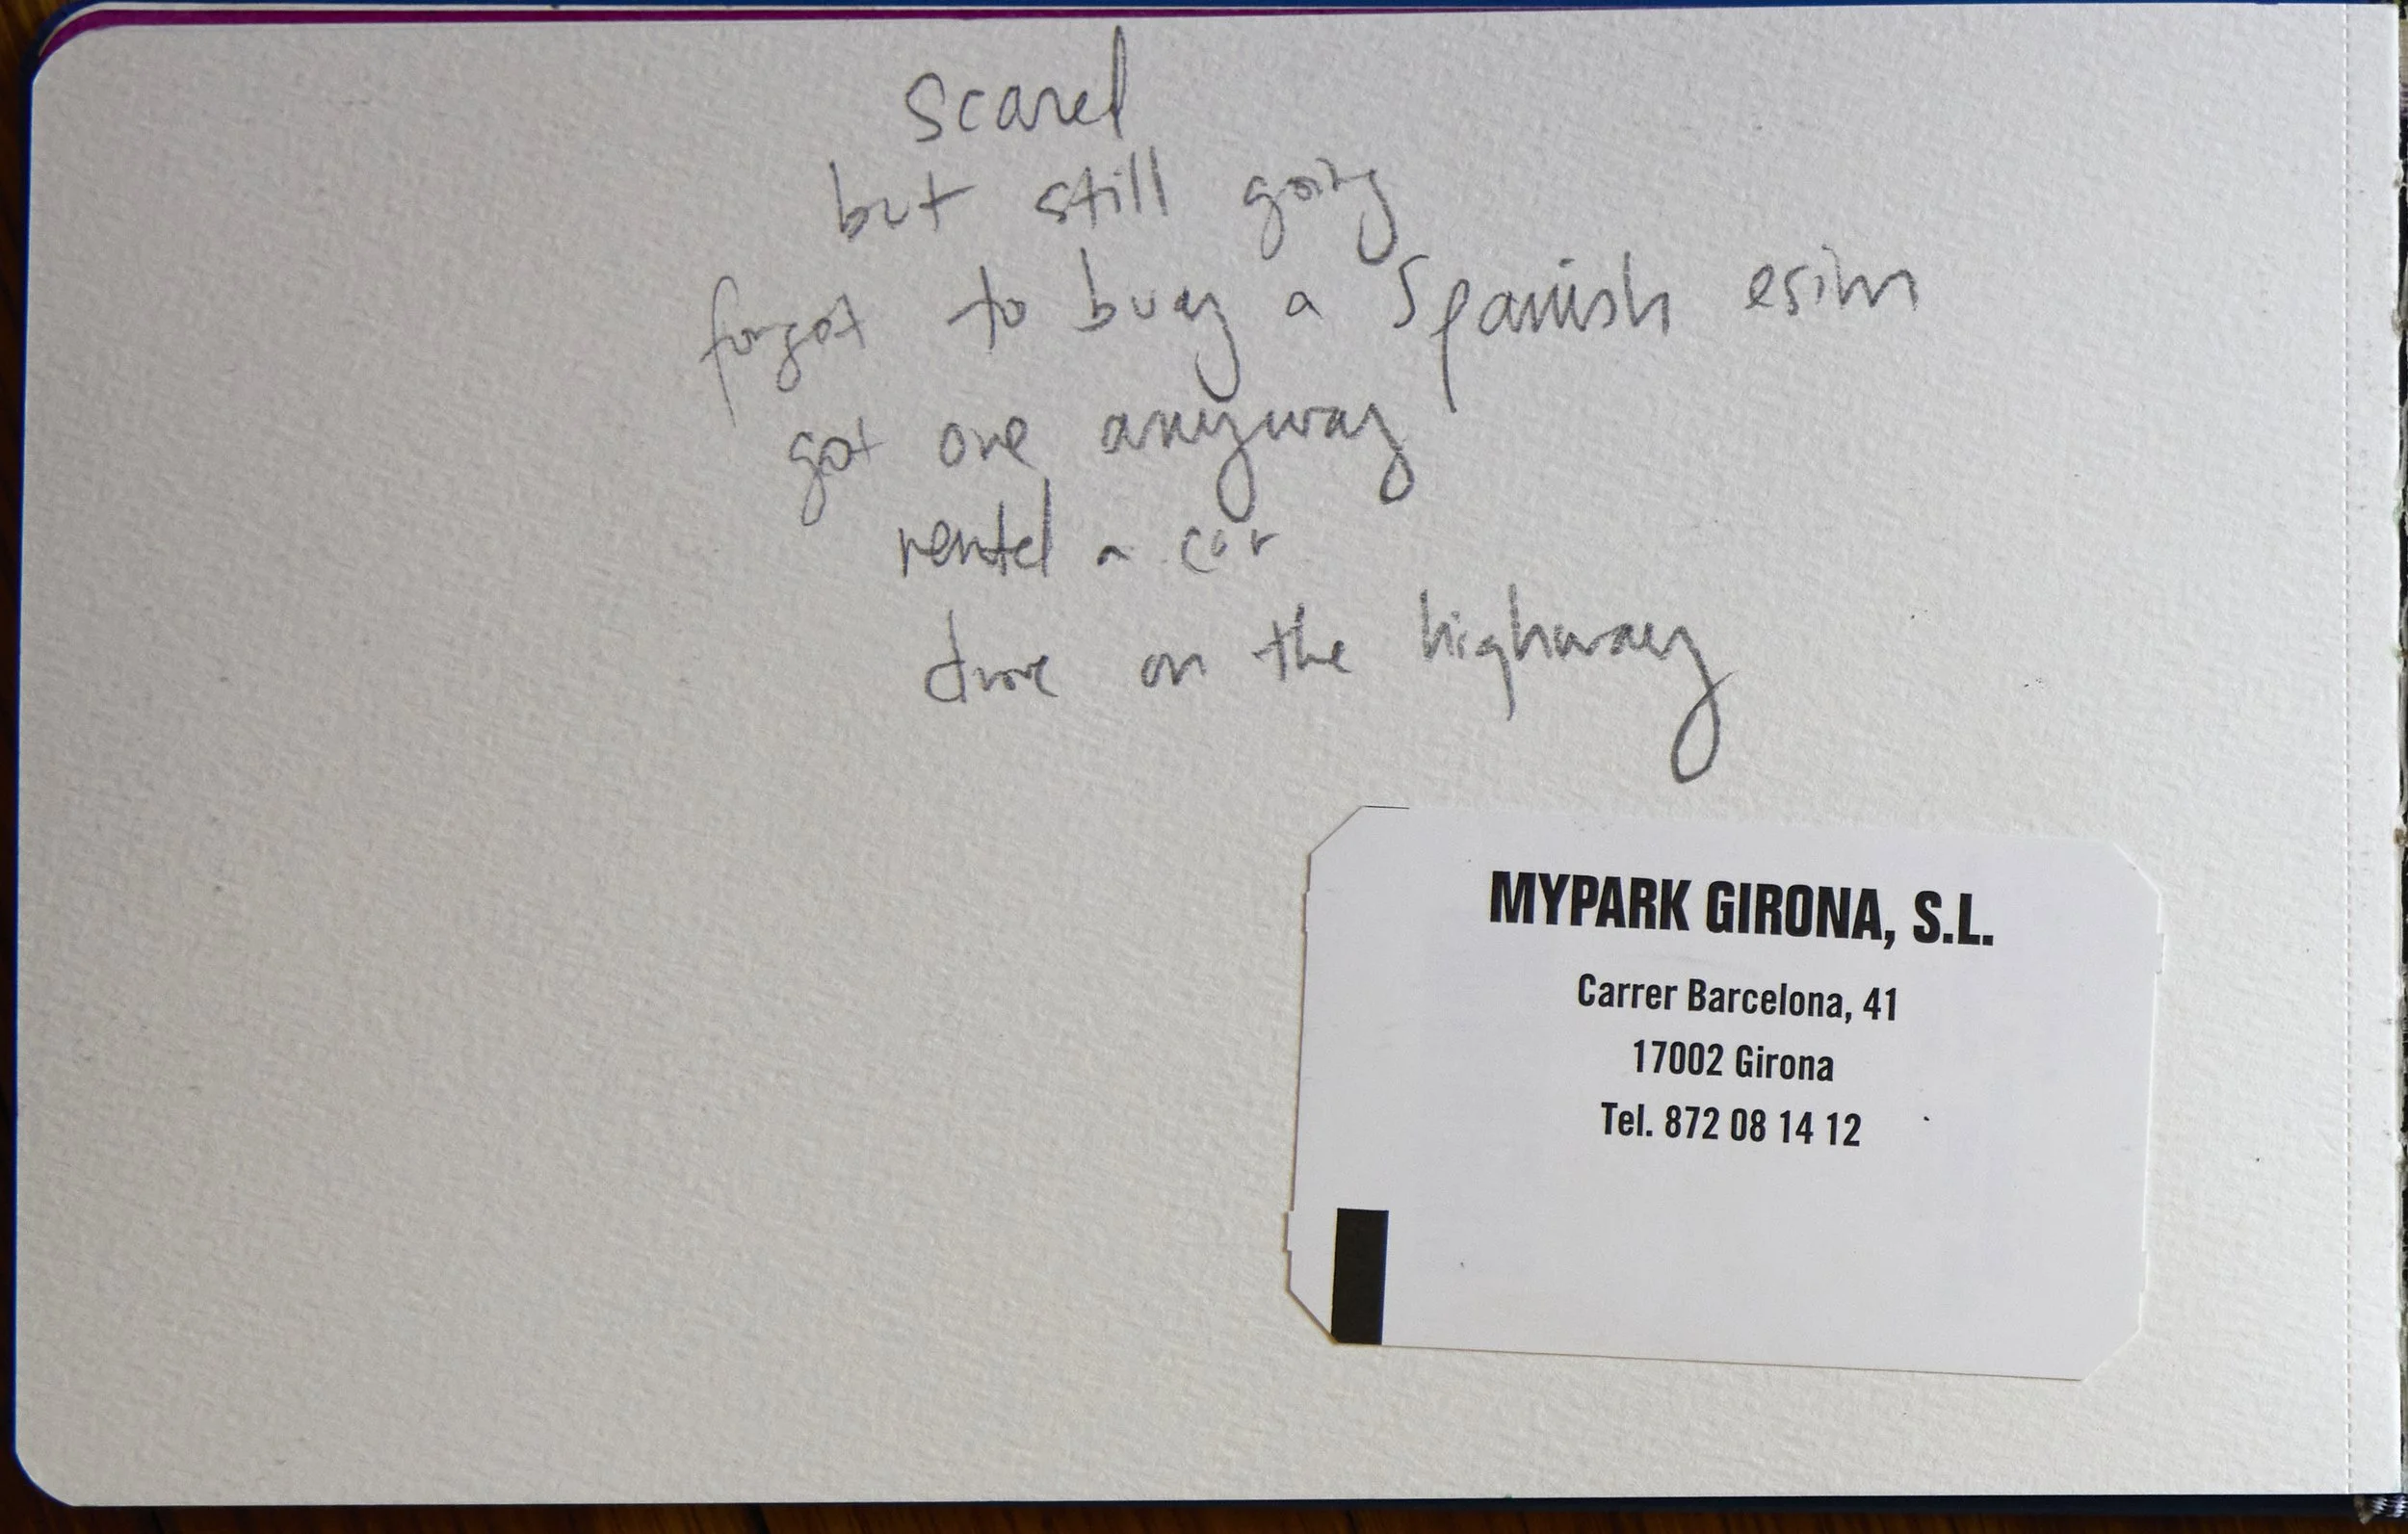 scared
but still going
forgot to buy a Spanish esim
got one anyway
rented a car
drove on the highway
MYPARK GIRONA, S.L.
Carrer Barcelona, 41
17002 Girona
Tel. 872 08 14 12